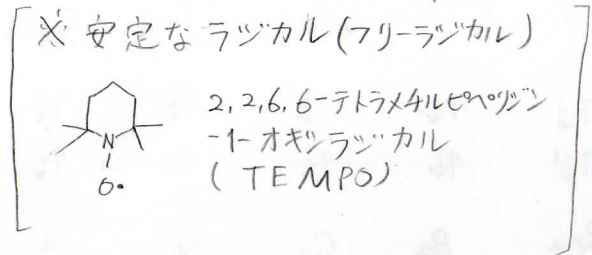 ※ 安定なラジカル(フリーラジカル)
2,2,6,6-テトラメチルピペリジン
-1-オキシラジカル
(TEMPO)
N
O•